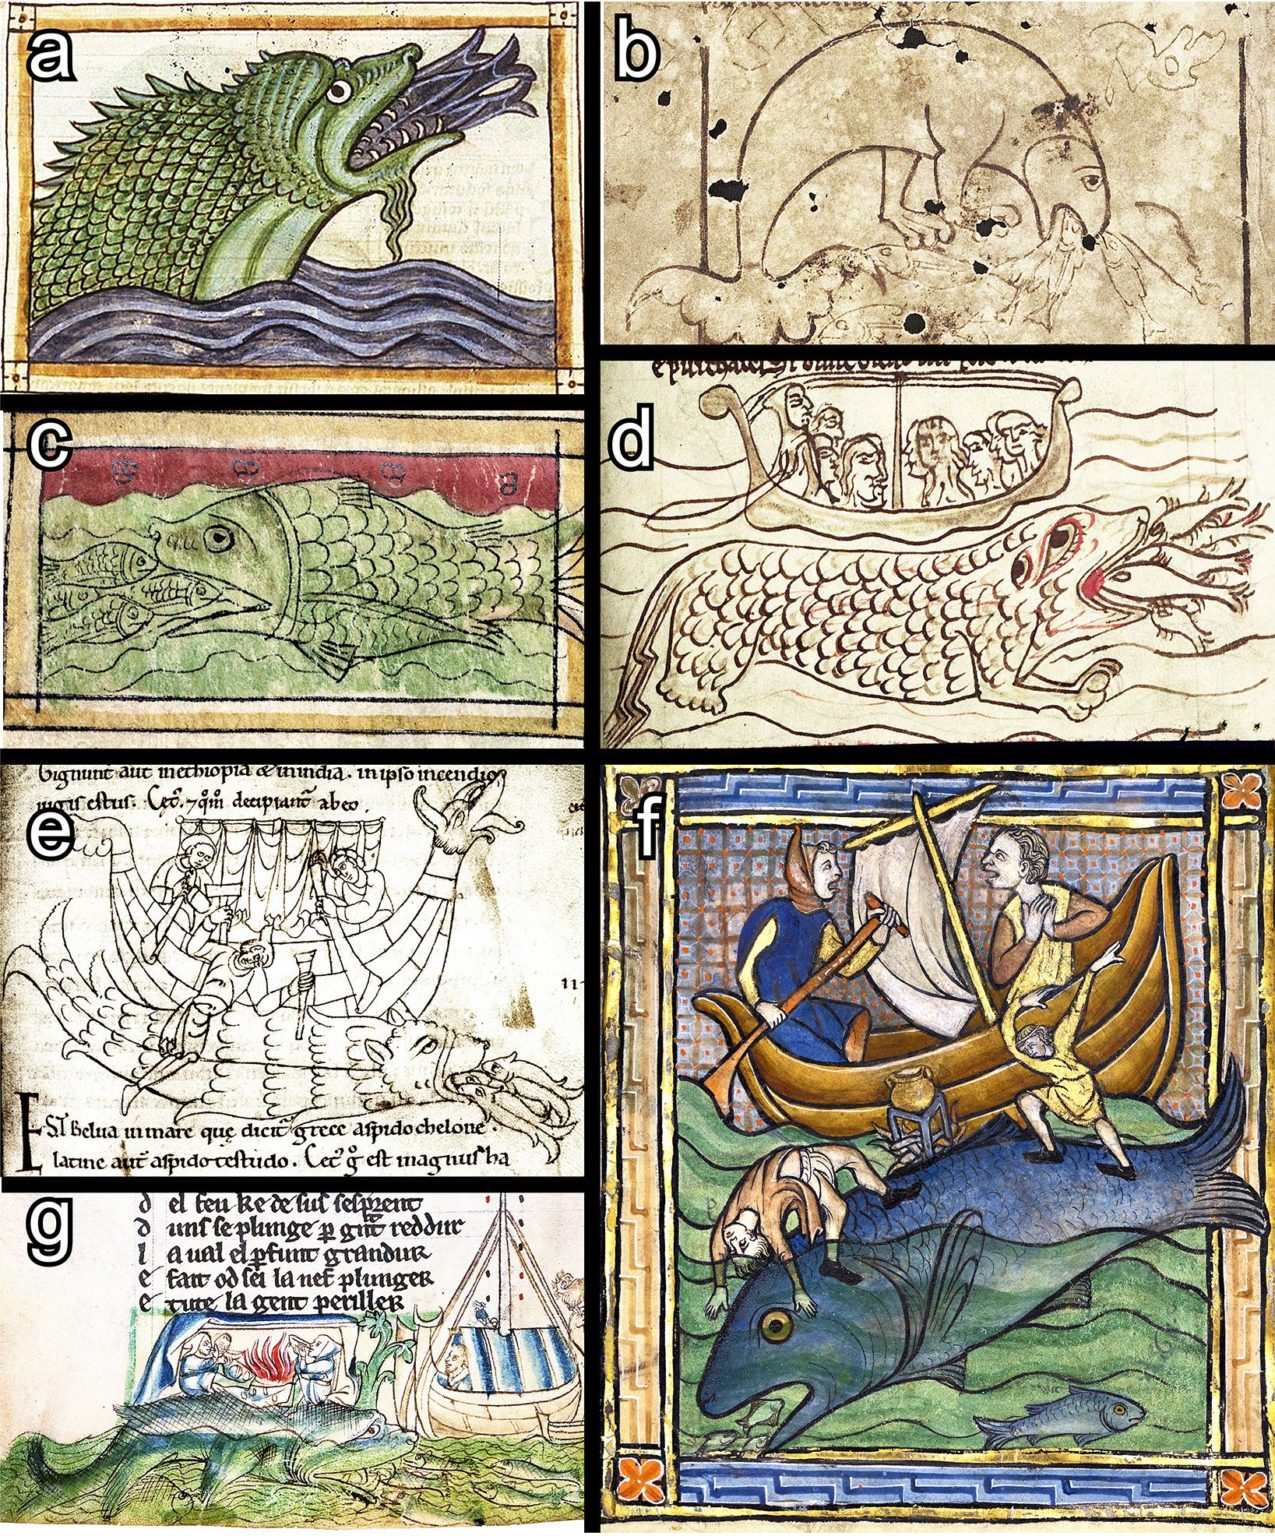 a
b
c
d
e
Gignunt aut inethiopia & inindia. inipso incendio
estus. Cet̄. decipiant̄ abeo.
ESt Belua inmare que dicit̄ grece aspidochelone.
latine aut̄ aspido testudo. Cet̄ g̊ est magnus ha
f
g
d el feu ke de sus
d unc se plunge p̱ gn̄t reddur
l a ual el p̱funt grandur
e fait od sei la nef plunger
e tute la gent periller